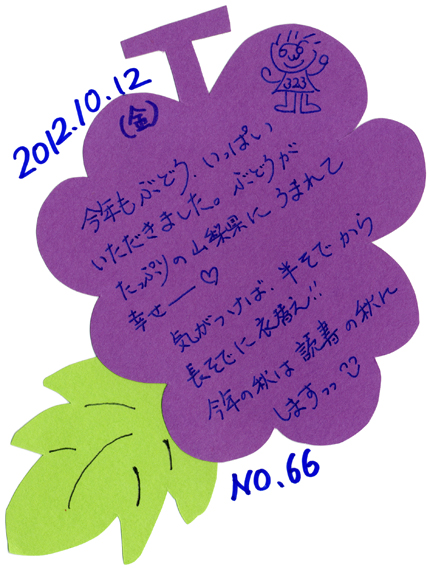 2012.10.12
(金)
323
今年もぶどう、いっぱい
いただきました。ぶどうが
たっぷりの山梨県にうまれて
幸せー♡
気がつけば、半そでから
長そでに衣替え!!
今年の秋は読書の秋に
しますっっ
NO.66